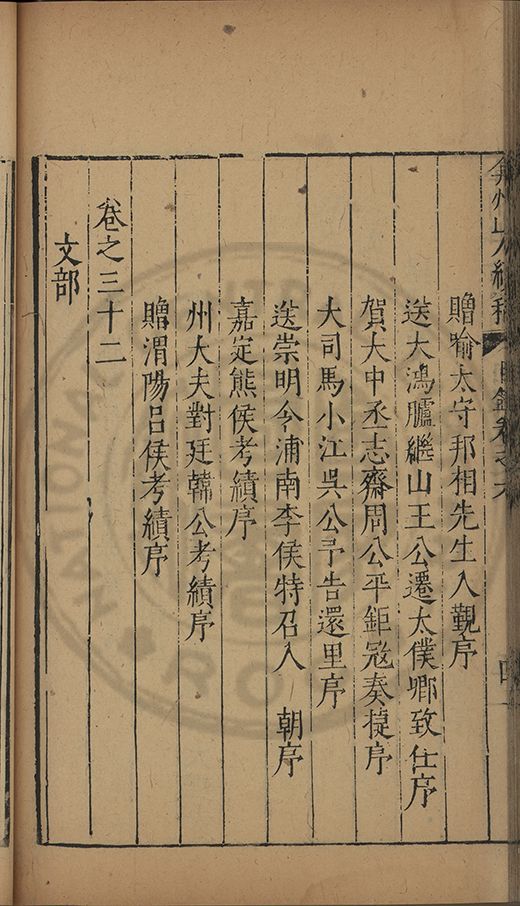 弇州山人續稿 目錄卷之六 四
贈喻太守邦相先生入覲序
送大鴻臚繼山王公遷太僕卿致仕序
賀大中丞志齋周公平鉅寇奏㨗序
大司馬小江吳公予告還里序
送崇明令浦南李侯特召入 朝序
嘉定熊侯考績序
州大夫對廷韓公考績序
贈渭陽呂侯考績序
卷之三十二
文部